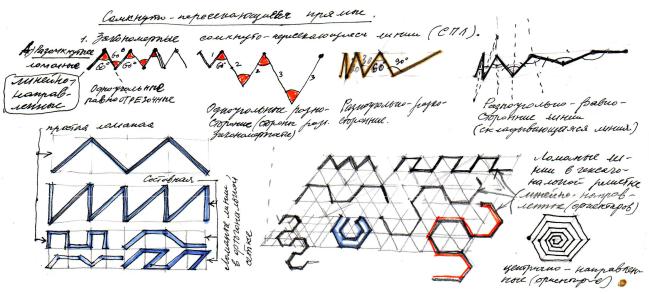 Сомкнуто-пересекающиеся прямые.
1. Закономерные сомкнуто-пересекающиеся линии (СПЛ).
А) Разомкнутые ломаные
линейно-
направ-
ленные
60° 60° 60° 60°
Одноугольные
равноотрезочные
60° 1 2 2 3 3
Одноугольные разно-
сторонние (стороны разн.
закономерности)
30 30 60° 90°
Разноугольно-разно-
сторонние.
Разноугольно-равно-
сторонние линии
(складывающаяся линия.)
простая ломаная
Составная
Ломаные линии
в ортогональной
сетке
Ломаные ли-
нии в гексаго-
нальной решетке
линейно-направ-
ленные (ориентиров)
центрично-направлен-
ные (ориентиров)